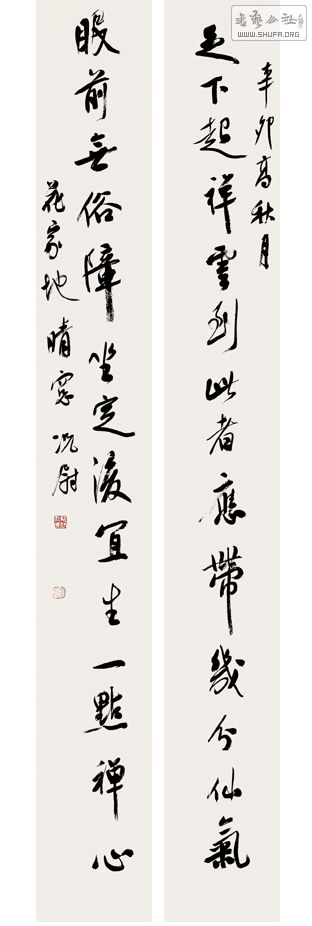 書藝公社
WWW.SHUFA.ORG
辛卯高秋月
足下起祥雲到此者應帶幾分仙氣
眼前無俗障坐定後宜生一點禪心
花家地晴窗況尉